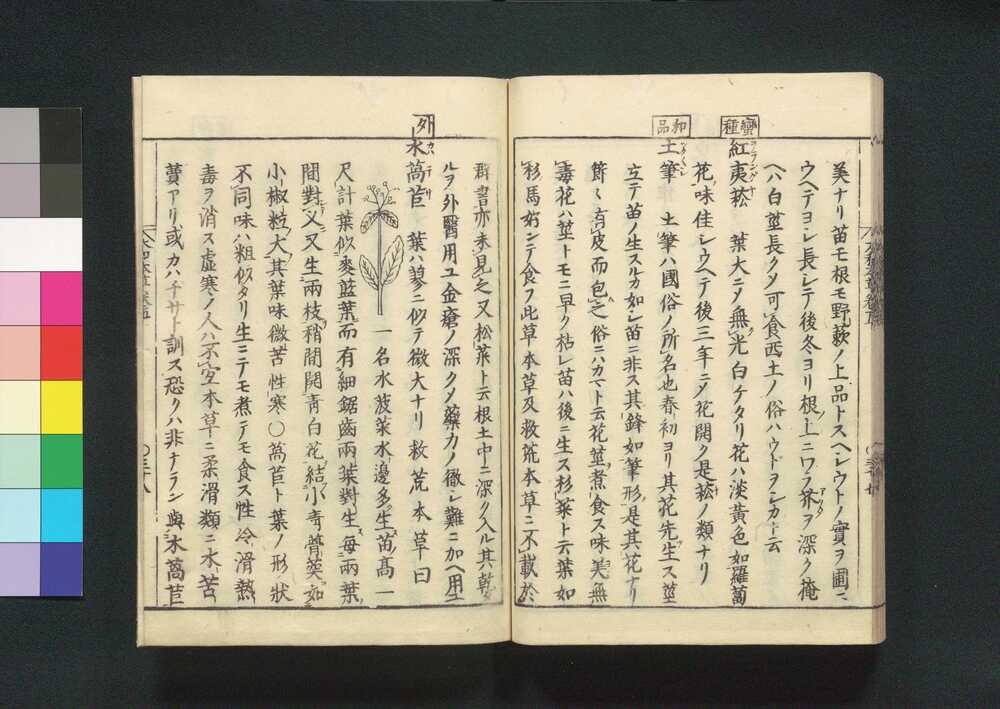 美ナリ苗モ根モ野蔌ノ上品トスヘシウトノ實ヲ圃ニ
ウヘテヨシ長シテ後冬ヨリ根ノ上ニワラ芥ヲ深ク掩
ヘハ白莖長クメ可食西土ノ俗ハウドヲシカト云
蠻種
紅夷菘 葉大ニメ無光白ケタリ花ハ淡黄色如羅蔔
花味佳シウヘテ後三年ニメ花開ク是菘ノ類ナリ
和品
土筆 土筆ハ國俗ノ所名也春初ヨリ其花先生ス莖
立テ苗ノ生スルカ如シ苗ニ非ス其鋒如筆形是其花ナリ
節〻有皮而包之俗ニハカマト云花莖煮食ス味美無
毒花ハ莖トモニ早ク枯レ苗ハ後ニ生ス杉菜ト云葉如
杉馬好ンテ食フ此草本草及救荒本草ニ不載於
群書亦未見之又松菜ト云根土中ニ深ク入ル其乾
ルヲ外醫用ユ金瘡ノ深クメ藥力ノ徹シ難ニ加ヘ用ユ
外
水萵苣 葉ハ蓼ニ似テ微大ナリ救荒本草曰
一名水菠菜水邊多生苗高一
尺計葉似麥藍葉而有細鋸齒兩葉對生每兩葉
間對叉又生兩枝稍間開青白花結小青蓇葖如
小椒粒大其葉味微苦性寒〇萵苣ト葉ノ形狀
不同味ハ粗似タリ生ニテモ煮テモ食ス性冷滑熱
毒ヲ消ス虛寒ノ人ハ不宜本草ニ柔滑類ニ水苦
蕒アリ或カハチサト訓ス恐クハ非ナラン與水萵苣